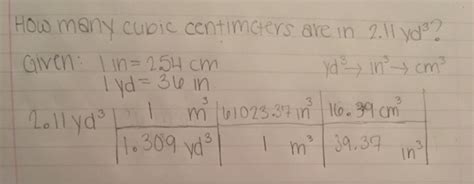 How many cubic centimeters are in 2.11 yd³?
Given: 1 in = 2.54 cm yd³ → in³ → cm³
1 yd = 36 in
2.11 yd³ 1 m³ 61023.37 in³ 16.39 cm³
1.309 yd³ 1 m³ 39.37 in³